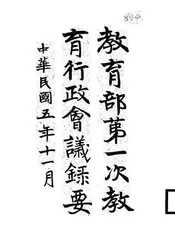 教育部第一次教
育行政會議錄要
中華民國五年十一月